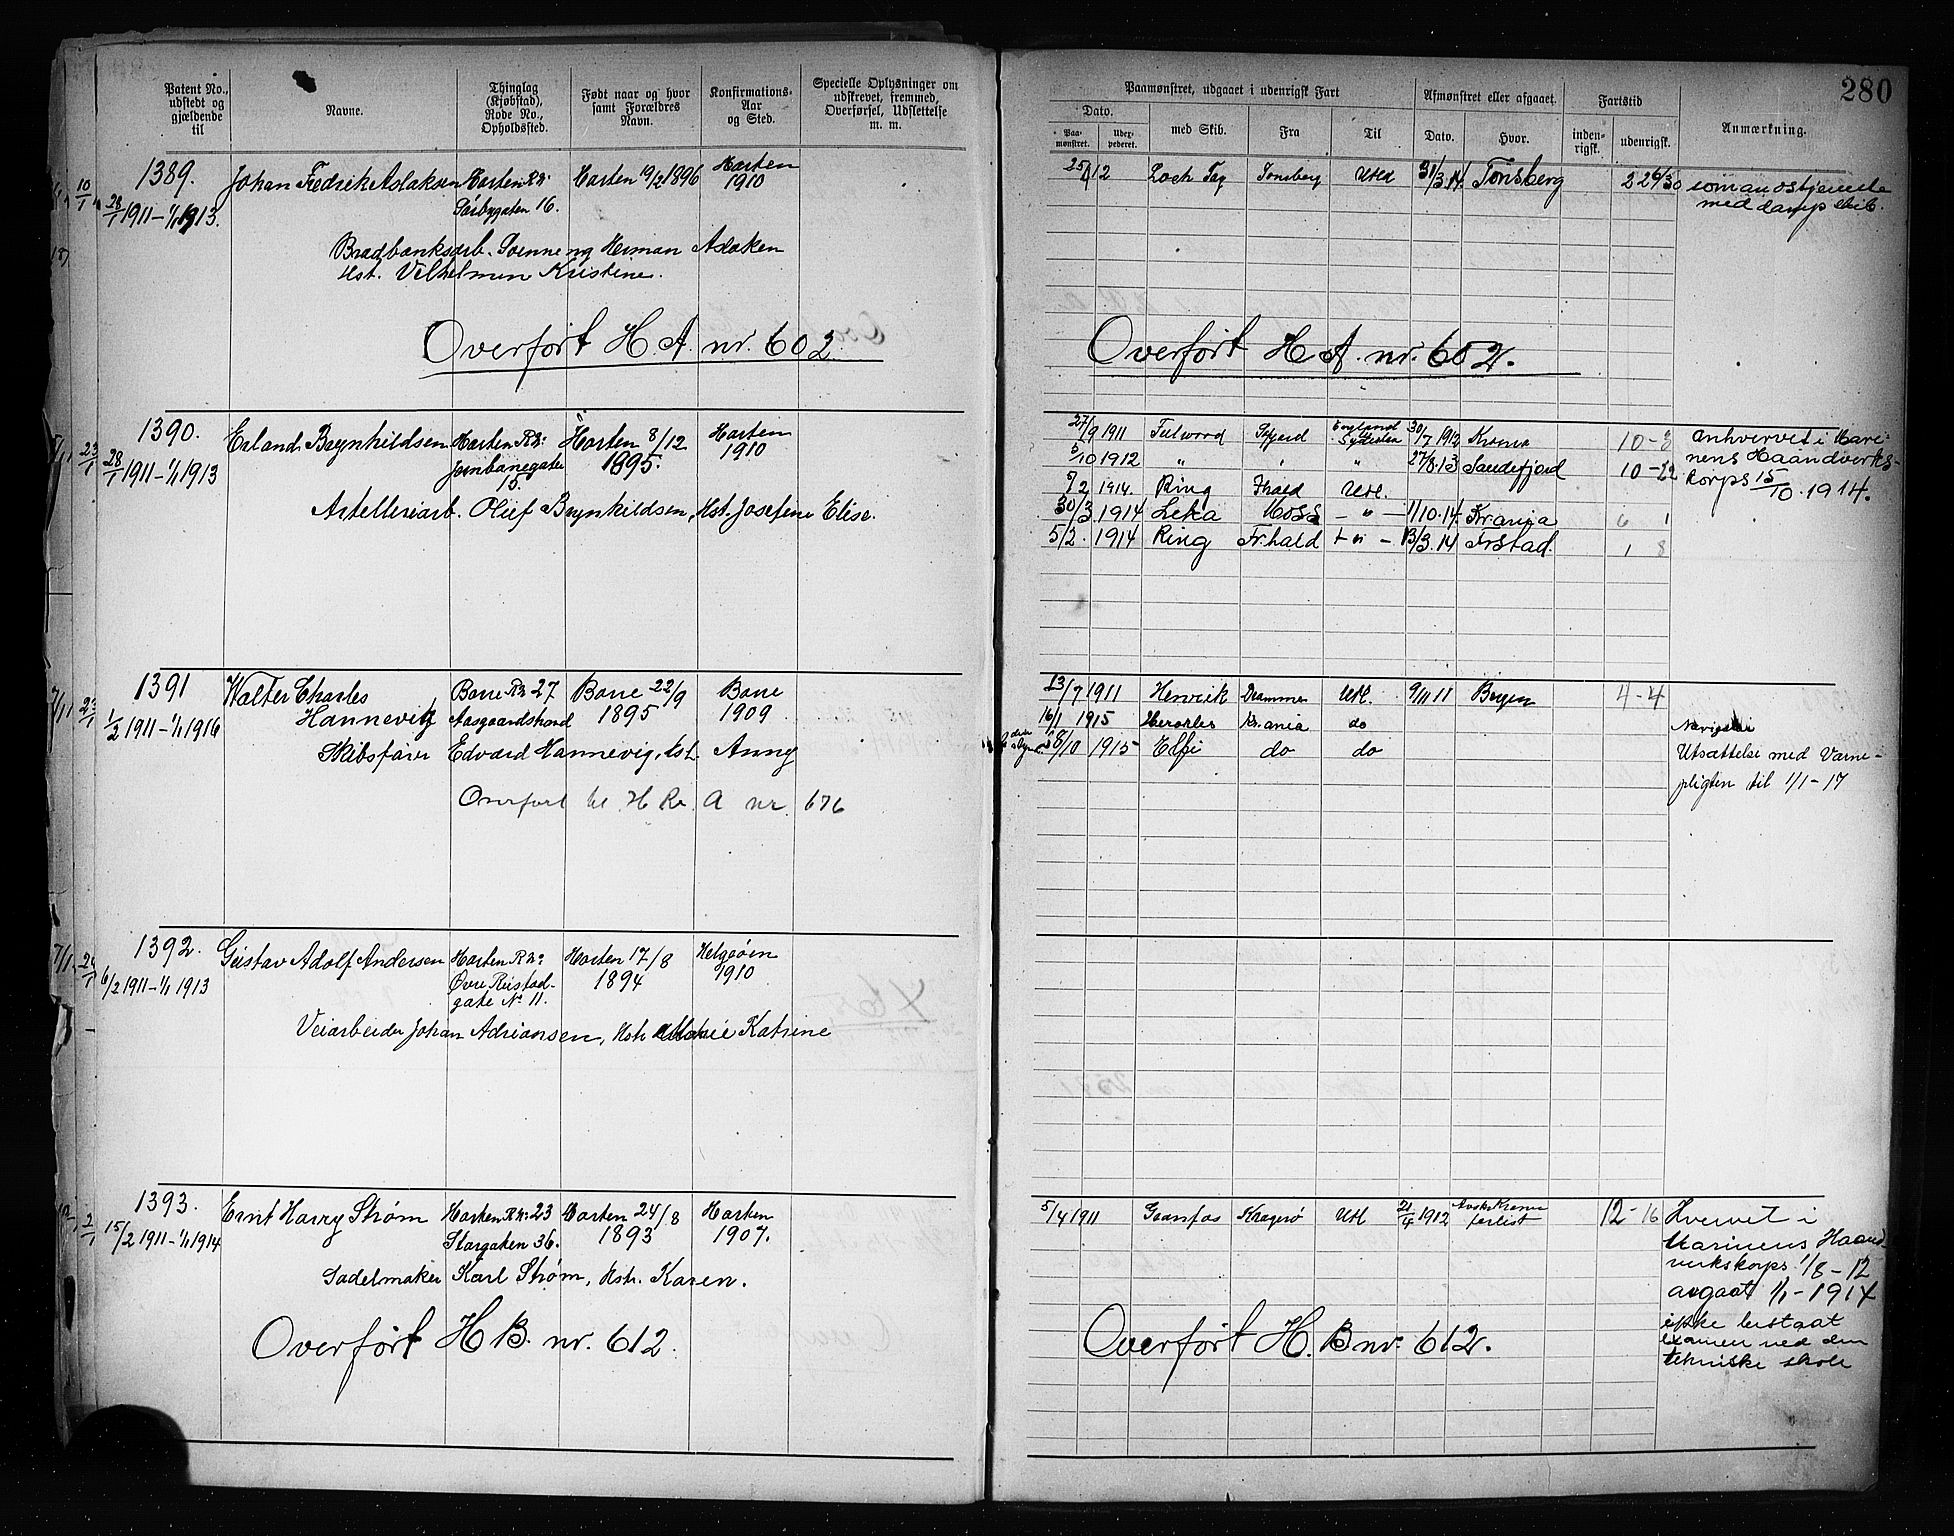 280
Patent No., udstedt og gjældende til
Navne.
Thinglag (Kjøbstad), Rode No., Opholdssted.
Født naar og hvor samt Forældres Navn.
Konfirmations- Aar og Sted.
Specielle Oplysninger om udskrevet, fremmed, Overførsel, Udslettelse m. m.
Paamønstret, udgaaet i udenrigsk Fart
Afmønstret eller afgaaet.
Fartstid
Anmærkning.
Dato.
med Skib.
Fra
Til
Dato.
Hvor.
inden- rigsk.
udenrigsk.
Paa- mønstret.
1389. Johan Fredrik Aslaksen Horten R №: Horten 19/2 1896 Horten
28/1 1911 – 1/1 1913. 16. 1910
Herman
Vilhelmin Kristine.
Overført H. A. nr. 602
25/ 12 Loch Tay Tønsberg Utld 31/3.14. Tønsberg 2 26/30
med dampskib.
Overført H A. nr. 602.
1390. Erland Brynhildsen Horten R №: Horten 8/12 Horten
28/1 1911 – 1/1 1913 Jernbanegaten 1895. 1910
15.
Oluf Brynhildsen, Hst. Josefine Elise.
27/9 1911 England 30/7 1912 Krania 10 – 3
5/10 1912 " " " 27/8.13 Sandefjord 10 – 22
5/2 1914. Ring Fhald Utl.
30/3. 1914 Leka Moss – " – 1/10.14. Krania 6 1
5/2. 1914 Ring Fr.hald 13/3.14 1 8
nens Haandverks-
korps 15/10. 1914.
1391 Walter Charles Borre R№ 27 Borre 22/9 Borre
1/2 1911 – 1/1 1916 Hannevig Aasgaardstrand 1895 1909.
Skibsfører Edvard Hannevig, Hst. Anny
Overført til H Rr. A nr. 676
13/7 1911 Henrik Drammen Utl. 9/11 11 Bergen 4 – 4
16/1 1915 Herakles Krania do
8/10 1915 do do
Utsættelse med Verne-
pligten til 1/1 – 17
1392. Gustav Adolf Andersen Horten R №: Horten 17/8
6/2 1911 – 1/1 1913 Øvre 1894 1910
gate № 11.
Veiarbeider Johan Adriansen, Hstr Marie Katrine
1393. Ernt Harry Strøm Horten R №: 23 Horten 24/8 Horten
15/2 1911 – 1/1 1914 Storgaten 36. 1893 1907.
Sadelmaker Karl Strøm, Hstr. Karen.
Overført H B. nr. 612.
5/4 1911 Kragerø Utl 1912 forlist 12 – 16
Hvervet i
Marinens Haand-
verkskorps 1/8 – 12
avgaat 1/1 – 1914
ikke bestaat
examen ved den
tekniske skole
Overført H. B nr. 612.